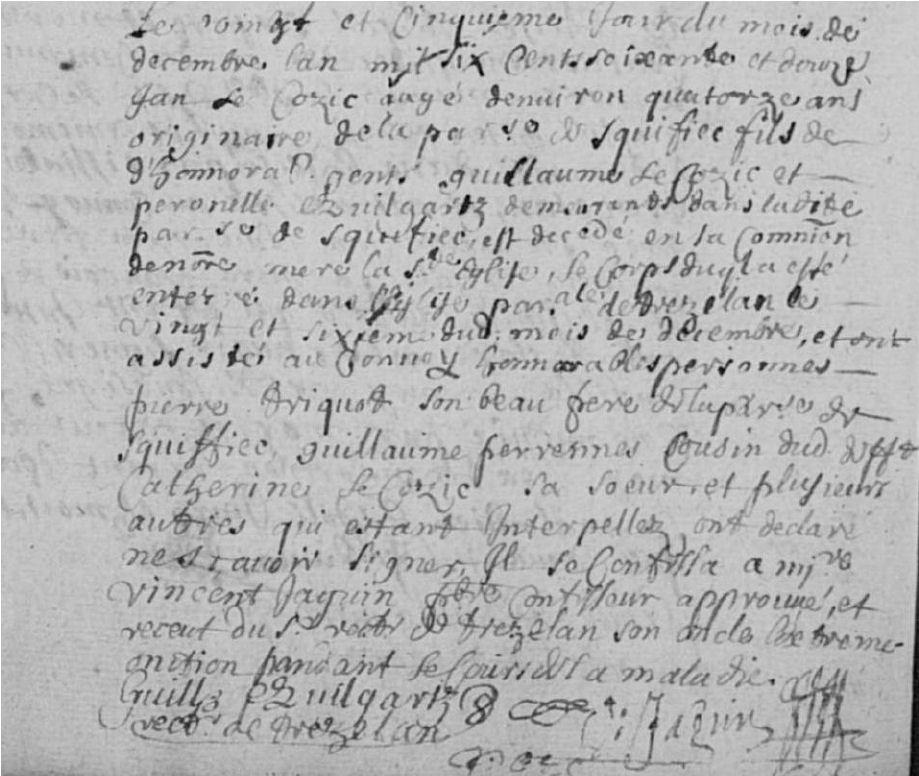 Le vingt et Cinquieme Jour du mois de
decembre lan mil six Cents soixante et douze
Jan Le Cozic aagé denuiron quatorze ans
originaire de la par.se de squifiec fils de
d'honnorab. gents guillaume Le Cozic et
peronille Euzuilgartz demeurants dans ladite
par.se de squifiec, est decedé en la Comnion
de nōre mere la s.te Eglise, le Corps duql a esté
enterré dans l'Eglise par.ale de trezelan le
vingt et sixiem dud. mois de decembre, et ont
assisté au Connoy honnorables personnes
pierre triquot son beau frere de la par.se de
squiffiec, guillaume perrennes Cousin dud. defft
Catherine Le Cozic sa soeur et plusieurs
autres qui estant Interpellez ont declaré
ne scauoir signer, Il se Confessa a mi.re
vincent Jaguin pbre Confesseur approuué, et
receut du s.r rectr de trezelan son oncle l'extreme
onction pandant le Cours de sa maladie.
Guill. Euzuilgartz
rectr. de trezelan
V: Jaguin